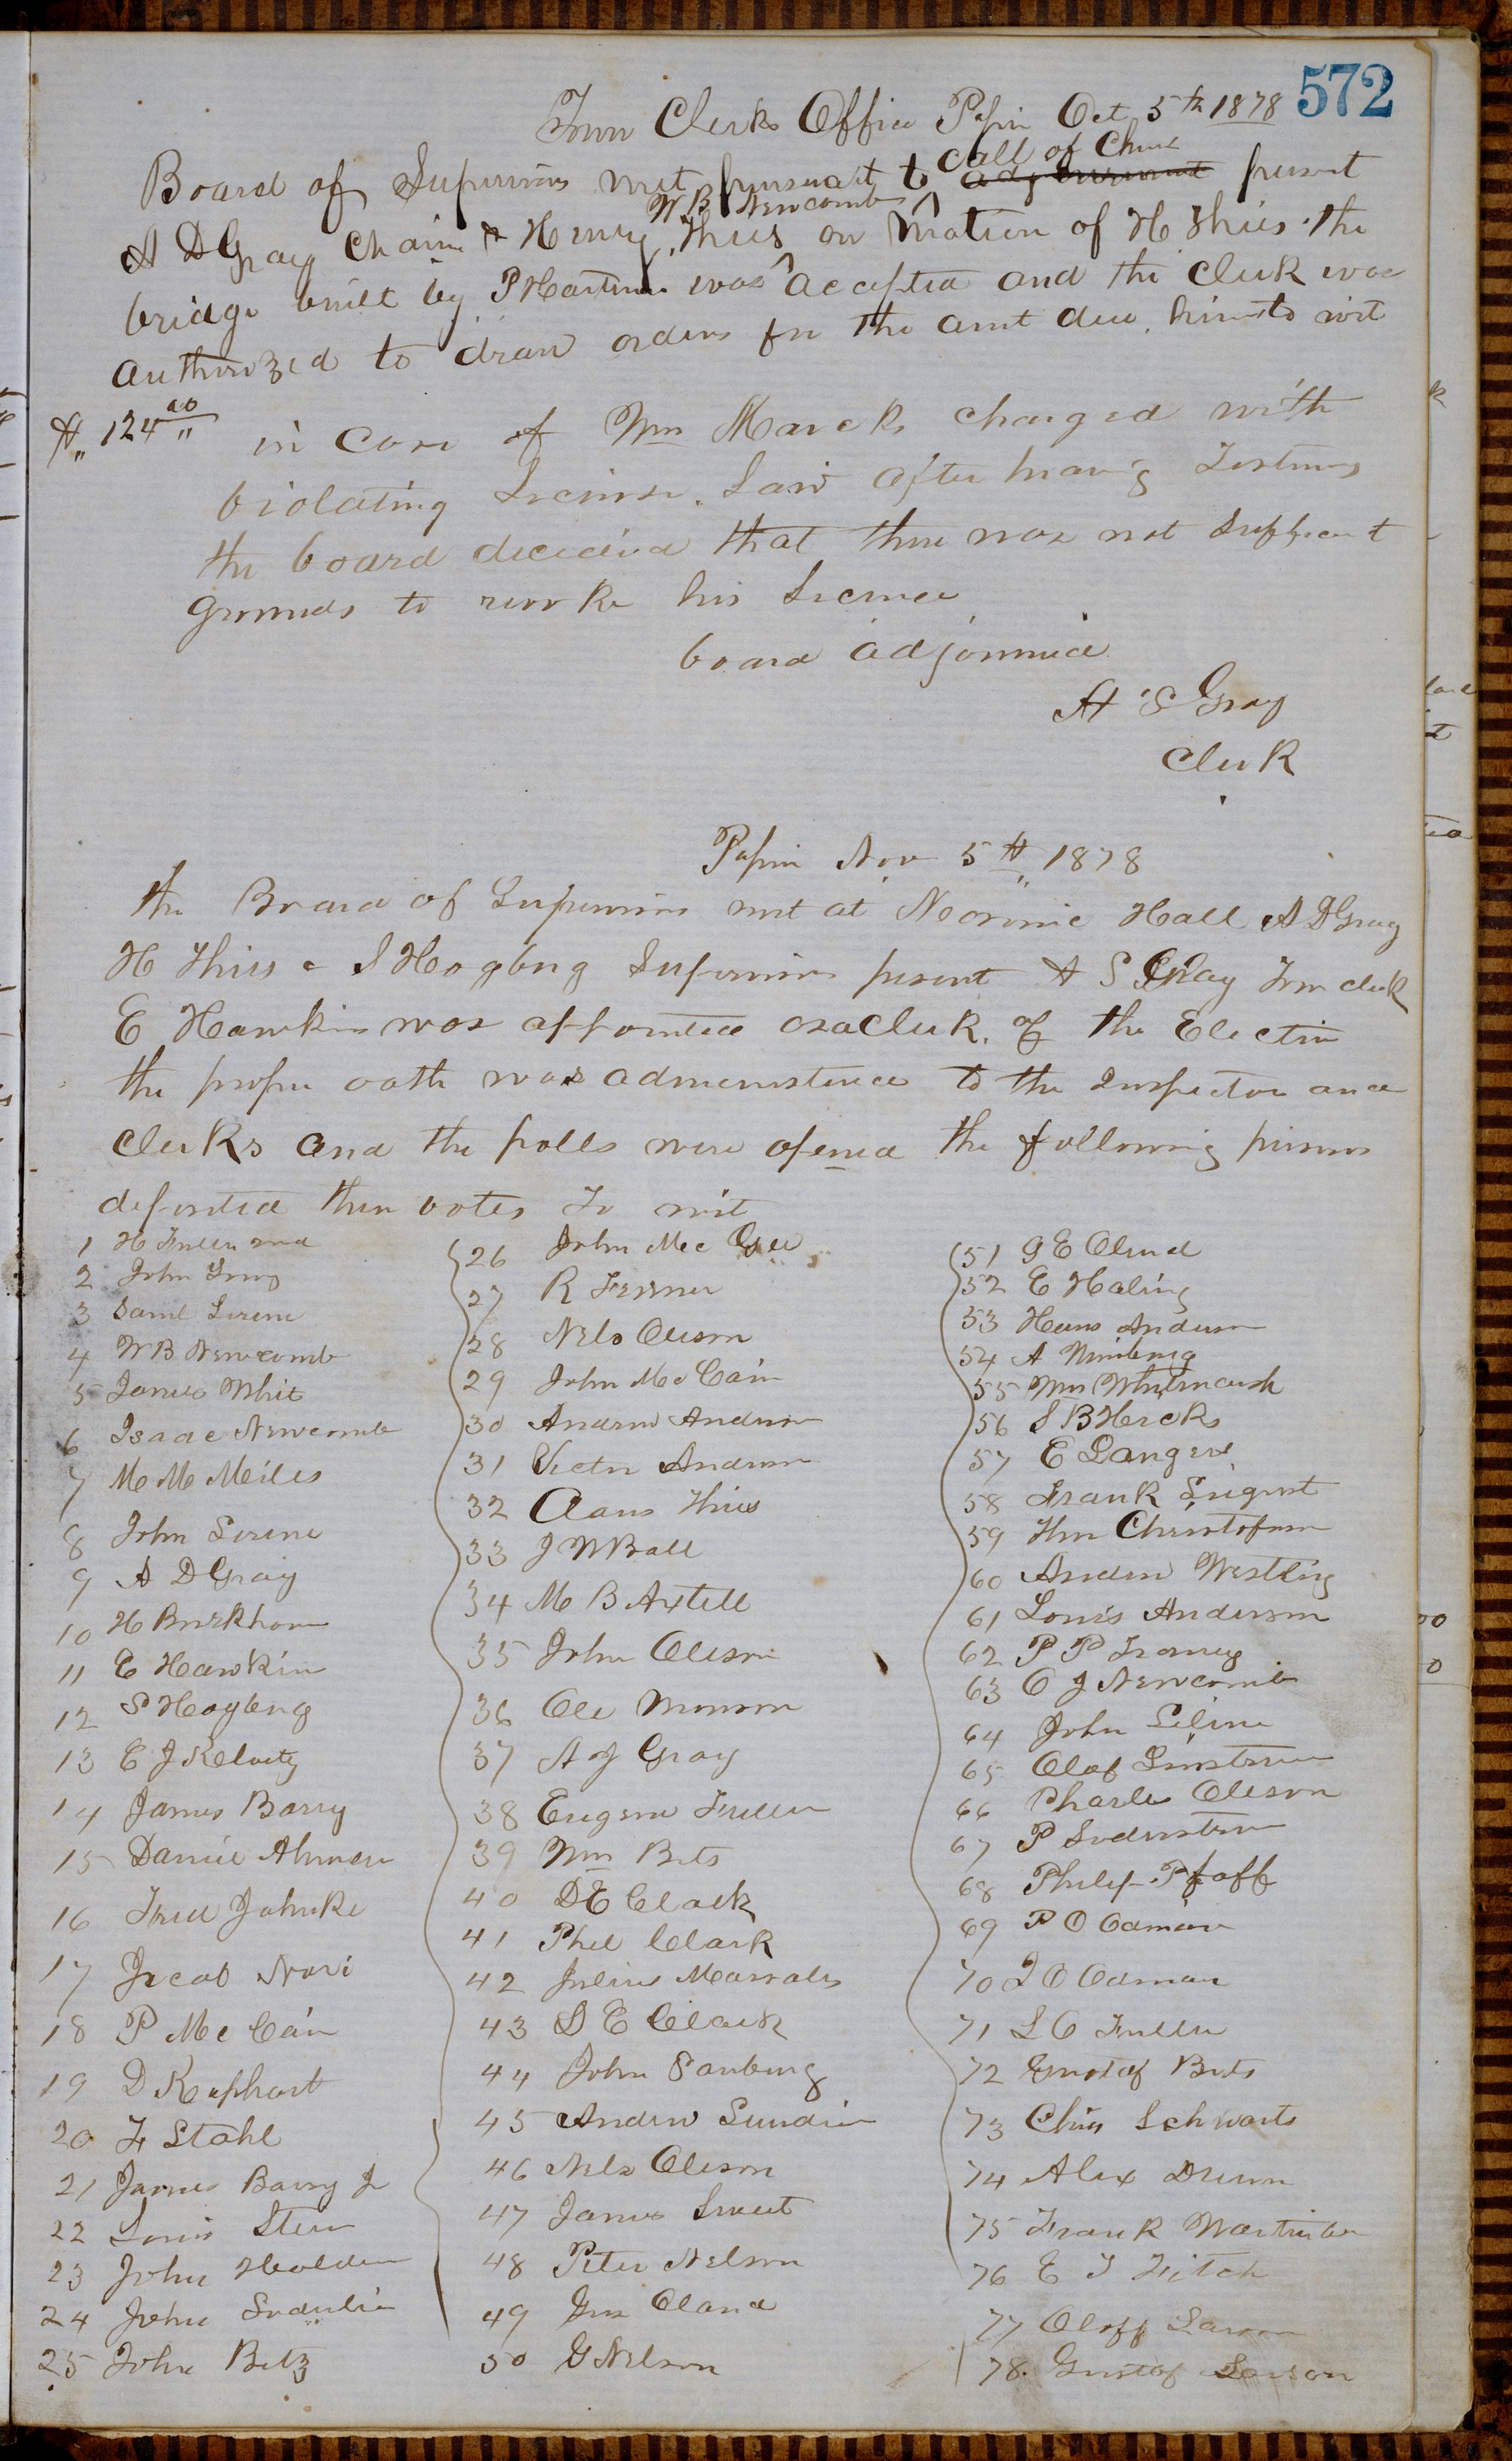 572
Town Clerks Office Pepin Oct 5th 1878
call of Chair
Board of Supervisors met pursuant to adjournment present
W B Newcomb
A D Gray Chairm & Henry Thies on Motion of H Thies the
bridge built by P Martin was accepted and the Clerk was
authorized to draw orders for the amt due him to wit
124 00
in Case of Wm Marcks charged with
violating License Law after hearing Testimony
the board decided that there was not sufficient
grounds to revoke his License
board adjourned
A S Gray
Clerk
Pepin Nov 5th 1878
the Board of Supervisors met at Hall A D Gray
H Thies & S Hogberg Supervisors present A S Gray Town clerk
E Hawkins was appointed as a Clerk of the Election
the proper oath was administered to the Inspectors and
Clerks and the polls were opened the following persons
deposited their votes To wit
1 H Fuller 2nd
2 John
3 Saml Serene
4 W B Newcomb
5 James Whit
6 Isaac Newcomb
7 M M Miles
8 John Serene
9 A D Gray
10 H
11 E Hawkin
12 S Hogberg
13 E J
14 James Barry
15 Daniel
16 Fred Johnke
17 Jacob
18 P Mc Cain
19 D Kephart
20 F Stahl
21 James Barry Jr
22 Louis Stern
23 John Holden
24 John Soderlin
25 John Betz
26 John Mc Gee
27 R
28 Nels Oleson
29 John Mc Cain
30 Andrew Anderson
31 Victor Anderson
32 Claus Thies
33 J W Ball
34 M B Axtell
35 John Oleson
36 Ole Monson
37 A J Gray
38 Eugene Fuller
39 Wm Bets
40 D E Clark
41 Phil Clark
42 Julius
43 S E Clark
44 John Sanberg
45 Andrew Sundin
46 Nels Oleson
47 James Sweet
48 Peter Nelson
49 Oland
50 G Nelson
51 G E Olund
52 E Haling
53 Hans Anderson
54 A
55 Wm
56 S B Hecks
57 E
58 Frank
59 Christoferson
60 Andrew Westling
61 Louis Anderson
62 P P
63 O J Newcomb
64 John
65 Olof
66 Charles Oleson
67 P Soderstrom
68 Philip Pfaff
69 P O
70 O
71 L O Fuller
72 Gustof Bets
73 Schwarts
74 Alex
75 Frank
76 E T Fitch
77 Oloff Larson
78. Gustof Larson